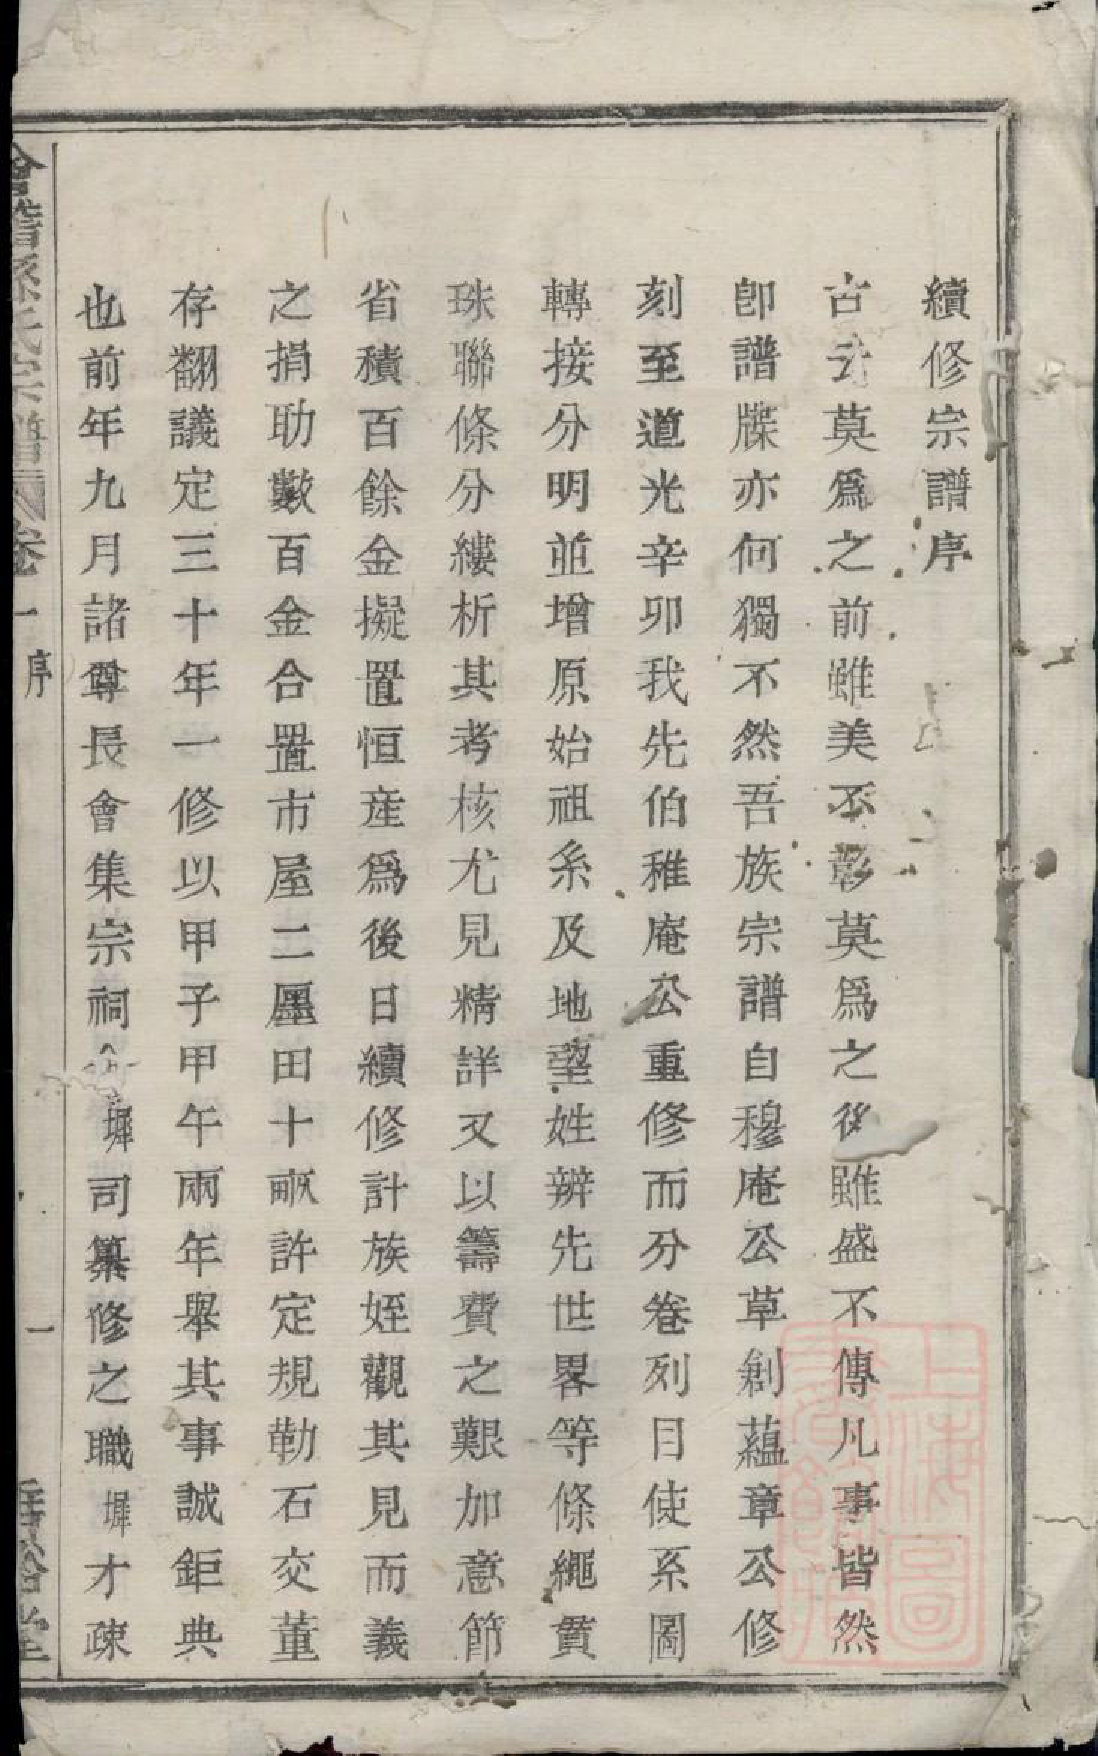 續修宗譜序
古云莫爲之前雖美不彰莫爲之後雖盛不傳凡事皆然
卽譜牒亦何獨不然吾族宗譜自穆庵公草創蘊章公修
刻至道光辛卯我先伯稚庵公重修而分卷列目使系圖
轉接分明並增原始祖系及地望姓辨先世畧等條繩貫
珠聯條分縷析其考核尤見精詳又以籌費之艱加意節
省積百餘金擬置恒産爲後日續修計族姪觀其見而義
之捐助數百金合置市屋二㕓田十畝許定規勒石交董
存翻議定三十年一修以甲子甲午兩年舉其事誠鉅典
也前年九月諸尊長會集宗祠命墀司纂修之職墀才疎
會稽孫氏宗譜 卷一 序 一 垂裕堂
上海圖書館藏